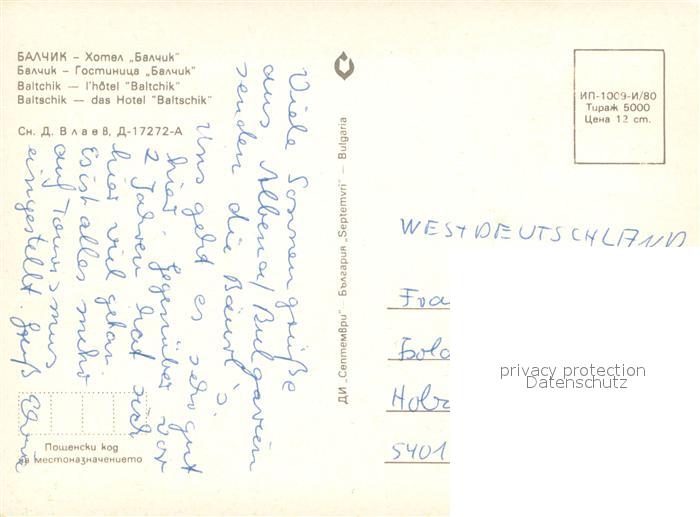 БАЛЧИК – Хотел „Балчик"
Балчик – Гостиница „Балчик"
Baltchik — l'hôtel "Baltchik"
Baltschik — das Hotel "Baltschik"
Сн. Д. Влаев, Д-17272-А
Viele Sonnengrüße
aus Albena/Bulgarien
senden die
Uns geht es sehr gut
hier. Gegenüber vor
2 Jahren hat sich
hier viel getan.
Es ist alles mehr
auf Tourismus
eingestellt. Gruß
Пощенски код
на местоназначението
ДИ „Септември" – България „Septemvri" — Bulgaria
ИП-1009-И/80
Тираж 5000
Цена 12 ст.
WESTDEUTSCHLAND
Fra
Holz
5401
privacy protection
Datenschutz